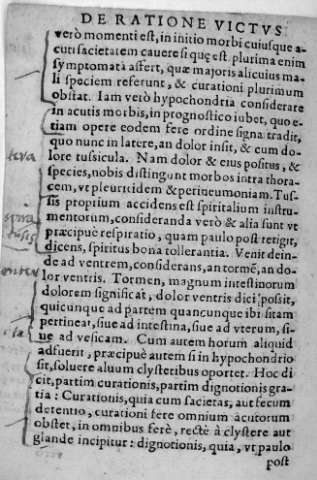 DE RATIONE VICTVS
verò momenti est, in initio morbi cuiusque a-
cuti sacietatem cauere si quę est. plurima enim
symptomata affert, quæ majoris alicuius ma-
li speciem referunt, & curationi plurimum
obstat. Iam verò hypochondria considerare
in acutis morbis, in prognostico iubet, quo e-
tiam opere eodem fere ordine signa tradit,
quo nunc in latere, an dolor insit, & cum do-
lore tussicula. Nam dolor & eius positus, &
species, nobis distingunt morbos intra thora-
cem, vt pleuritidem & perineumoniam. Tus-
sis proprium accidens est spiritalium instru-
mentorum, consideranda verò & alia sunt vt
præcipuè respiratio, quam paulo post retigit,
dicens, spiritus bona tollerantia. Venit dein-
de ad ventrem, considerans, an tormē, an do-
lor ventris. Tormen, magnum intestinorum
dolorem significat, dolor ventris dici possit,
quicunque ad partem quancunque ibi sitam
pertineat, siue ad intestina, siue ad vterum, si-
ue ad vesicam. Cum autem horum aliquid
adfuerit, præcipuè autem si in hypochondrio
sit, soluere aluum clysteribus oportet. Hoc di
cit, partim curationis, partim dignotionis gra-
tia: Curationis, quia cum sacietas, aut fecum
detentio, curationi fere omnium acutorum
obstet, in omnibus ferè, rectè à clystere aut
glande incipitur: dignotionis, quia, vt paulo
post
tussis